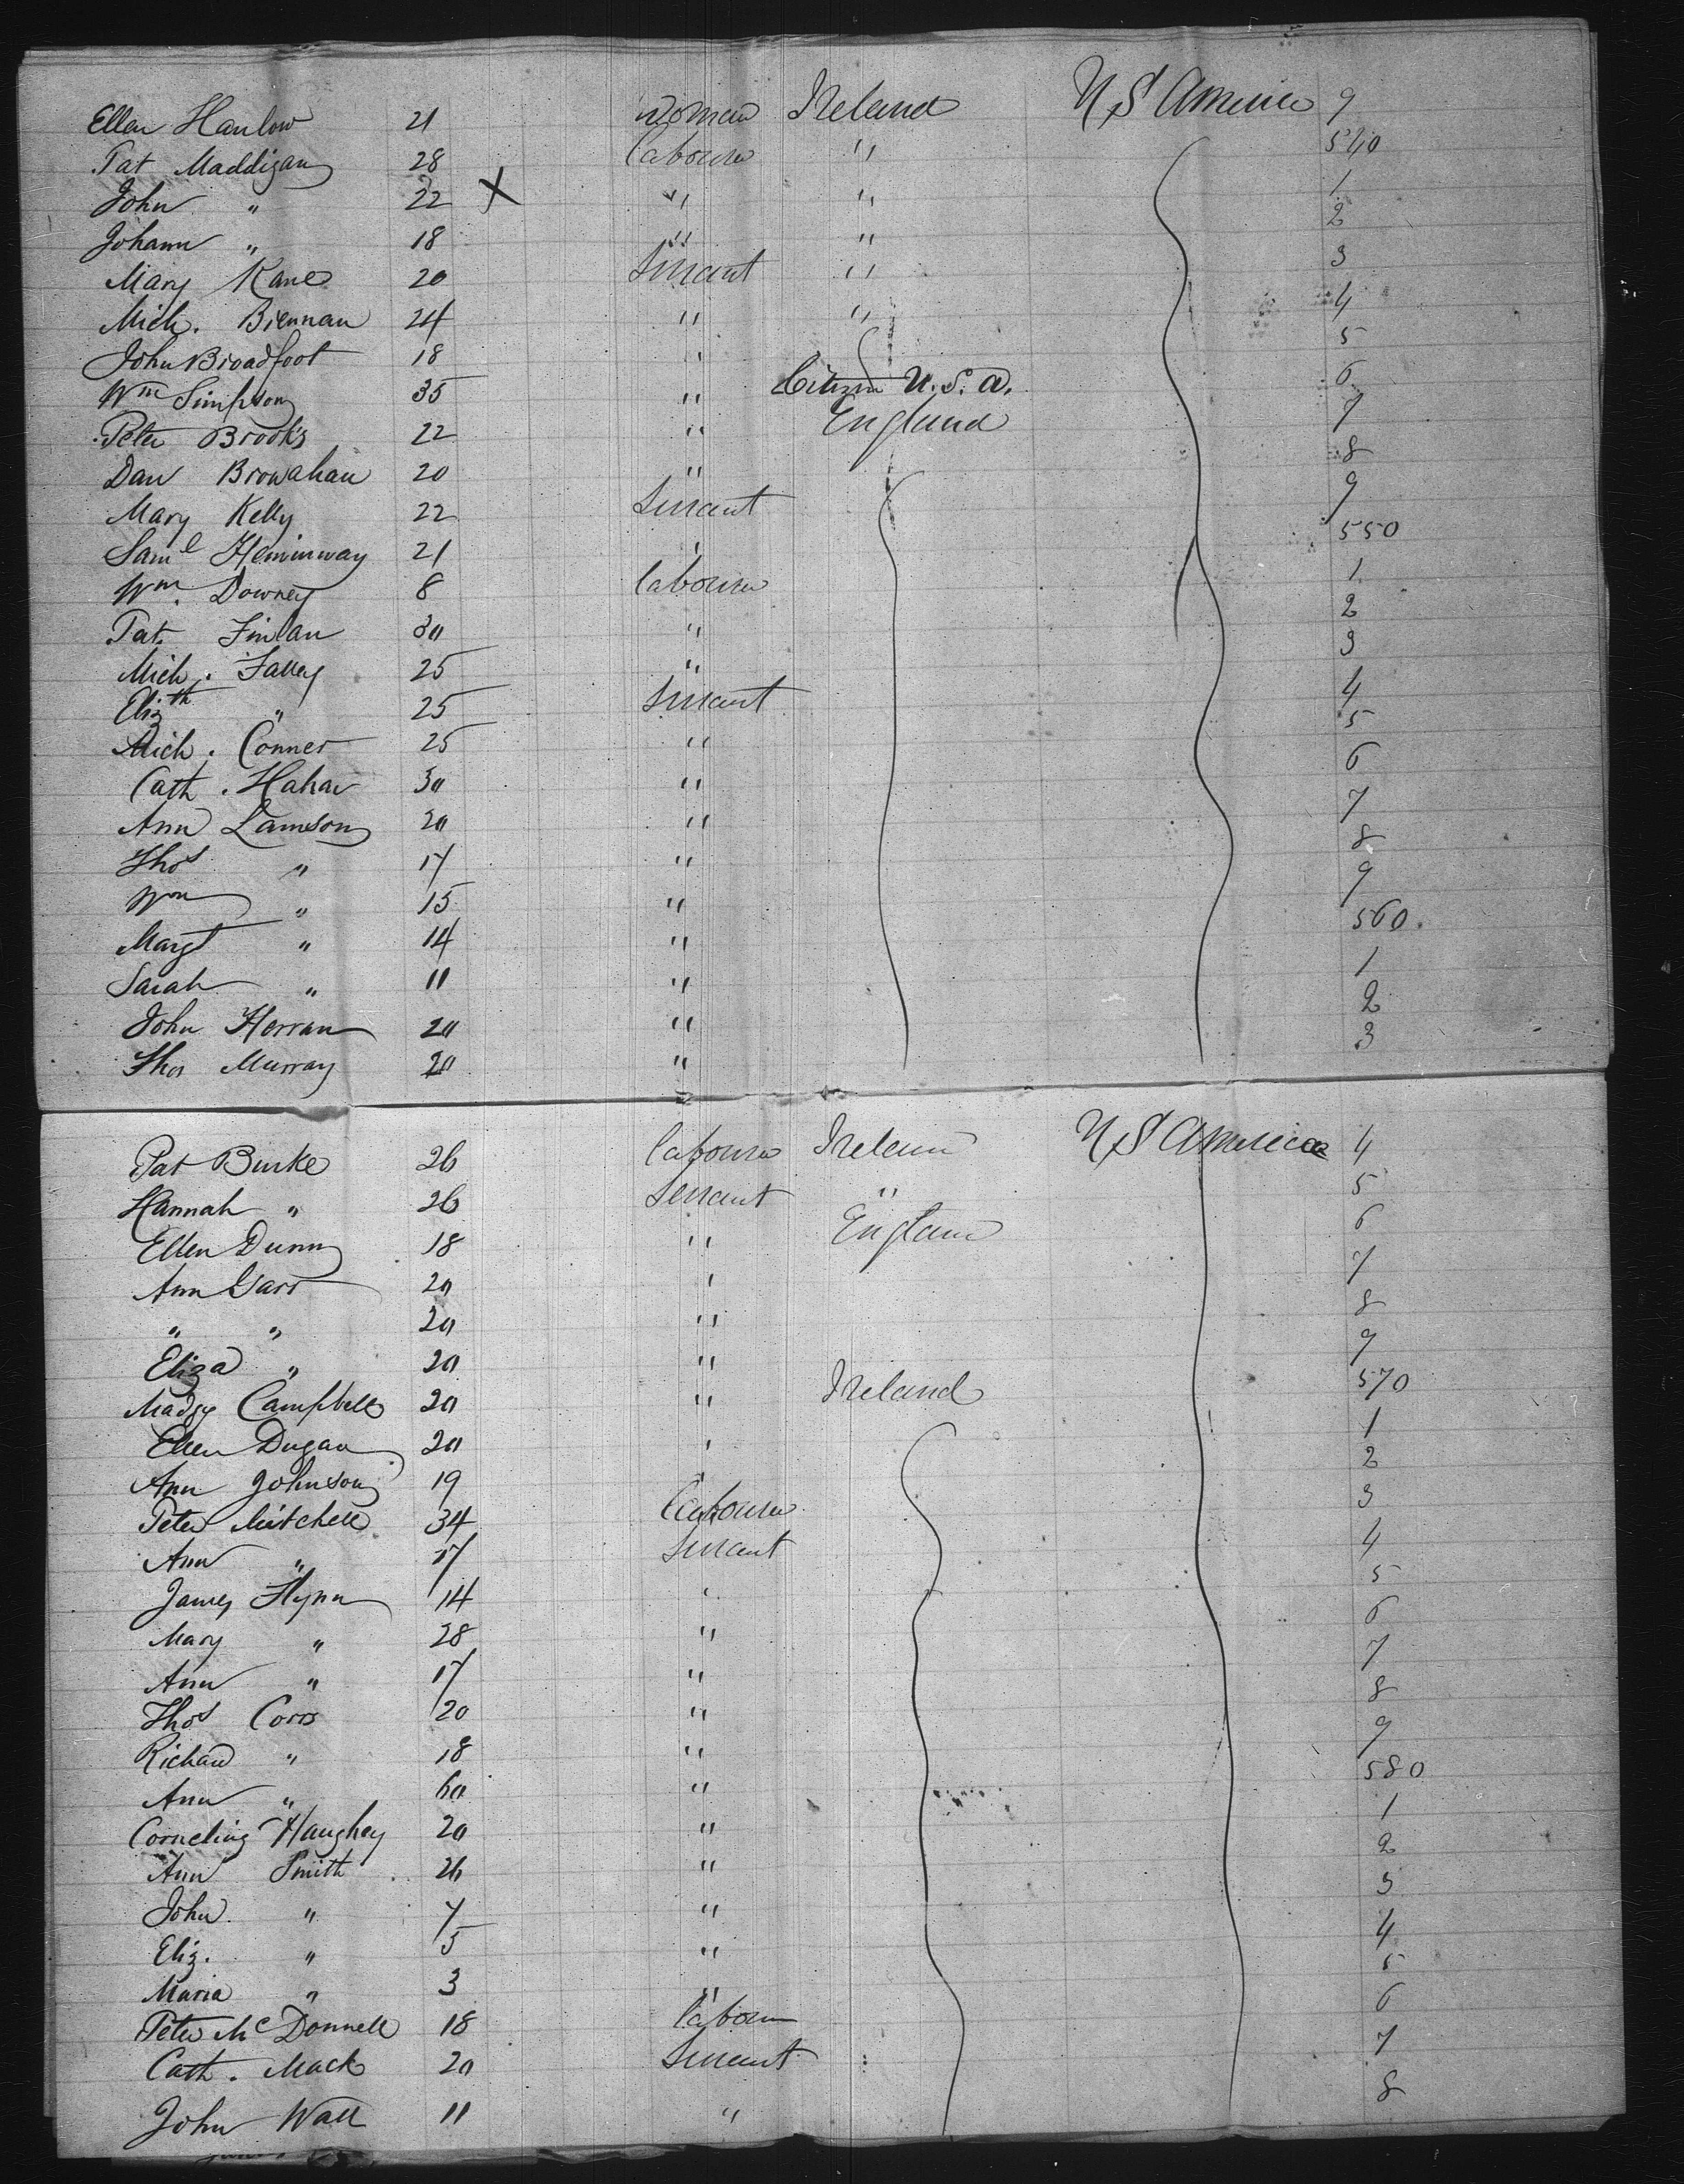 Ellen Hanlow 21 Woman Ireland U S America 9
Pat Maddigan 28 Labourer " 540
John " 22 X " " 1
Johann " 18 " " 2
Mary Kane 20 Servant " 3
Mich. Brennan 24 " " 4
John Broadfoot 18 " 5
Wm Simpson 35 " Citizen U.S.A. 6
Peter Brooks 22 " England 7
Dan Browahan 20 " 8
Mary Kelly 22 Servant 9
Saml Heminway 21 " 550
Wm. Downey 8 labourer 1
Pat. Finlan 30 " 2
Mich. Falley 25 " 3
Elizth " 25 Servant 4
Mich. Conner 25 " 5
Cath. Hahan 30 " 6
Ann Lamson 20 " 7
Thos " 17 " 8
Wm " 15 " 9
Margt " 14 " 560.
Sarah " 11 " 1
John Horran 20 " 2
Thos Murray 20 " 3
Pat Burke 26 labourer Ireland U S America 4
Hannah " 26 Servant " 5
Ellen Dunn 18 " England 6
Ann Garr 20 " 7
" " 20 " 8
Eliza " 20 " 9
Madge Campbell 20 " Ireland 570
Ellen Dugan 20 " 1
Ann Johnson 19 " 2
Peter Mitchell 34 Labourer 3
Ann " 17 Servant 4
James Flynn 14 " 5
Mary " 28 " 6
Ann " 17 " 7
Thos Corrs 20 " 8
Richard " 18 " 9
Ann " 60 " 580
Cornelius Haughey 20 " 1
Ann Smith 26 " 2
John " 7 " 3
Eliz. " 5 " 4
Maria " 3 " 5
Peter McDonnell 18 labour 6
Cath. Mack 20 Servant 7
John Wall 11 " 8